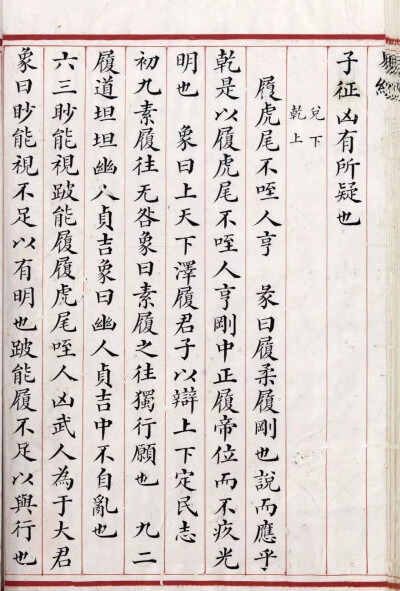 子征凶有所疑也
兌下
乾上
履虎尾不咥人亨　彖曰履柔履剛也說而應乎
乾是以履虎尾不咥人亨剛中正履帝位而不疚光
明也　象曰上天下澤履君子以辯上下定民志
初九素履往无咎象曰素履之往獨行願也　九二
履道坦坦幽人貞吉象曰幽人貞吉中不自亂也
六三眇能視跛能履履虎尾咥人凶武人為于大君
象曰眇能視不足以有明也跛能履不足以與行也